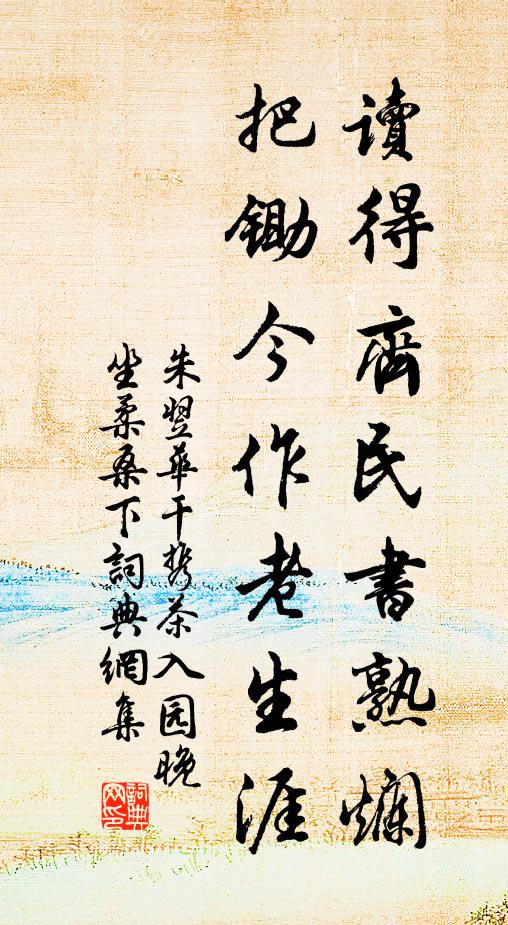 讀得齊民書熟爛
把鋤今作老生涯
朱翌華干攜茶入园晚
坐柔桑下詞典網集
詞典網印